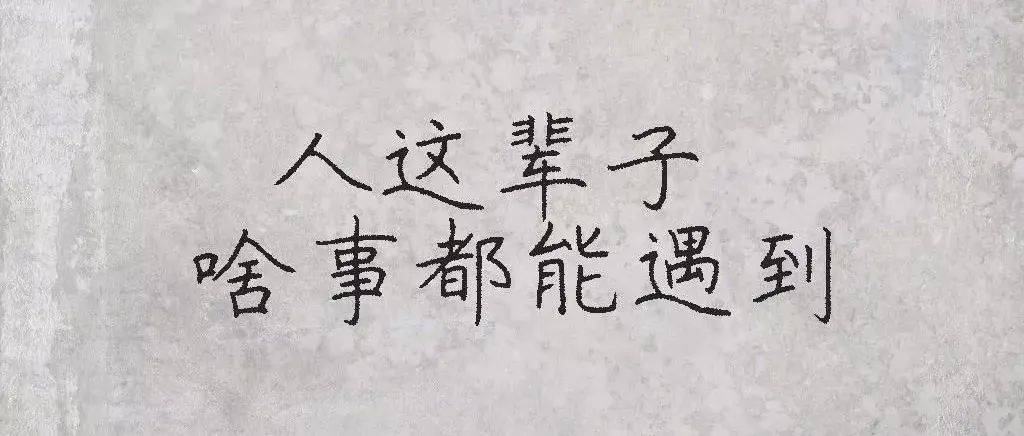 人这辈子
啥事都能遇到